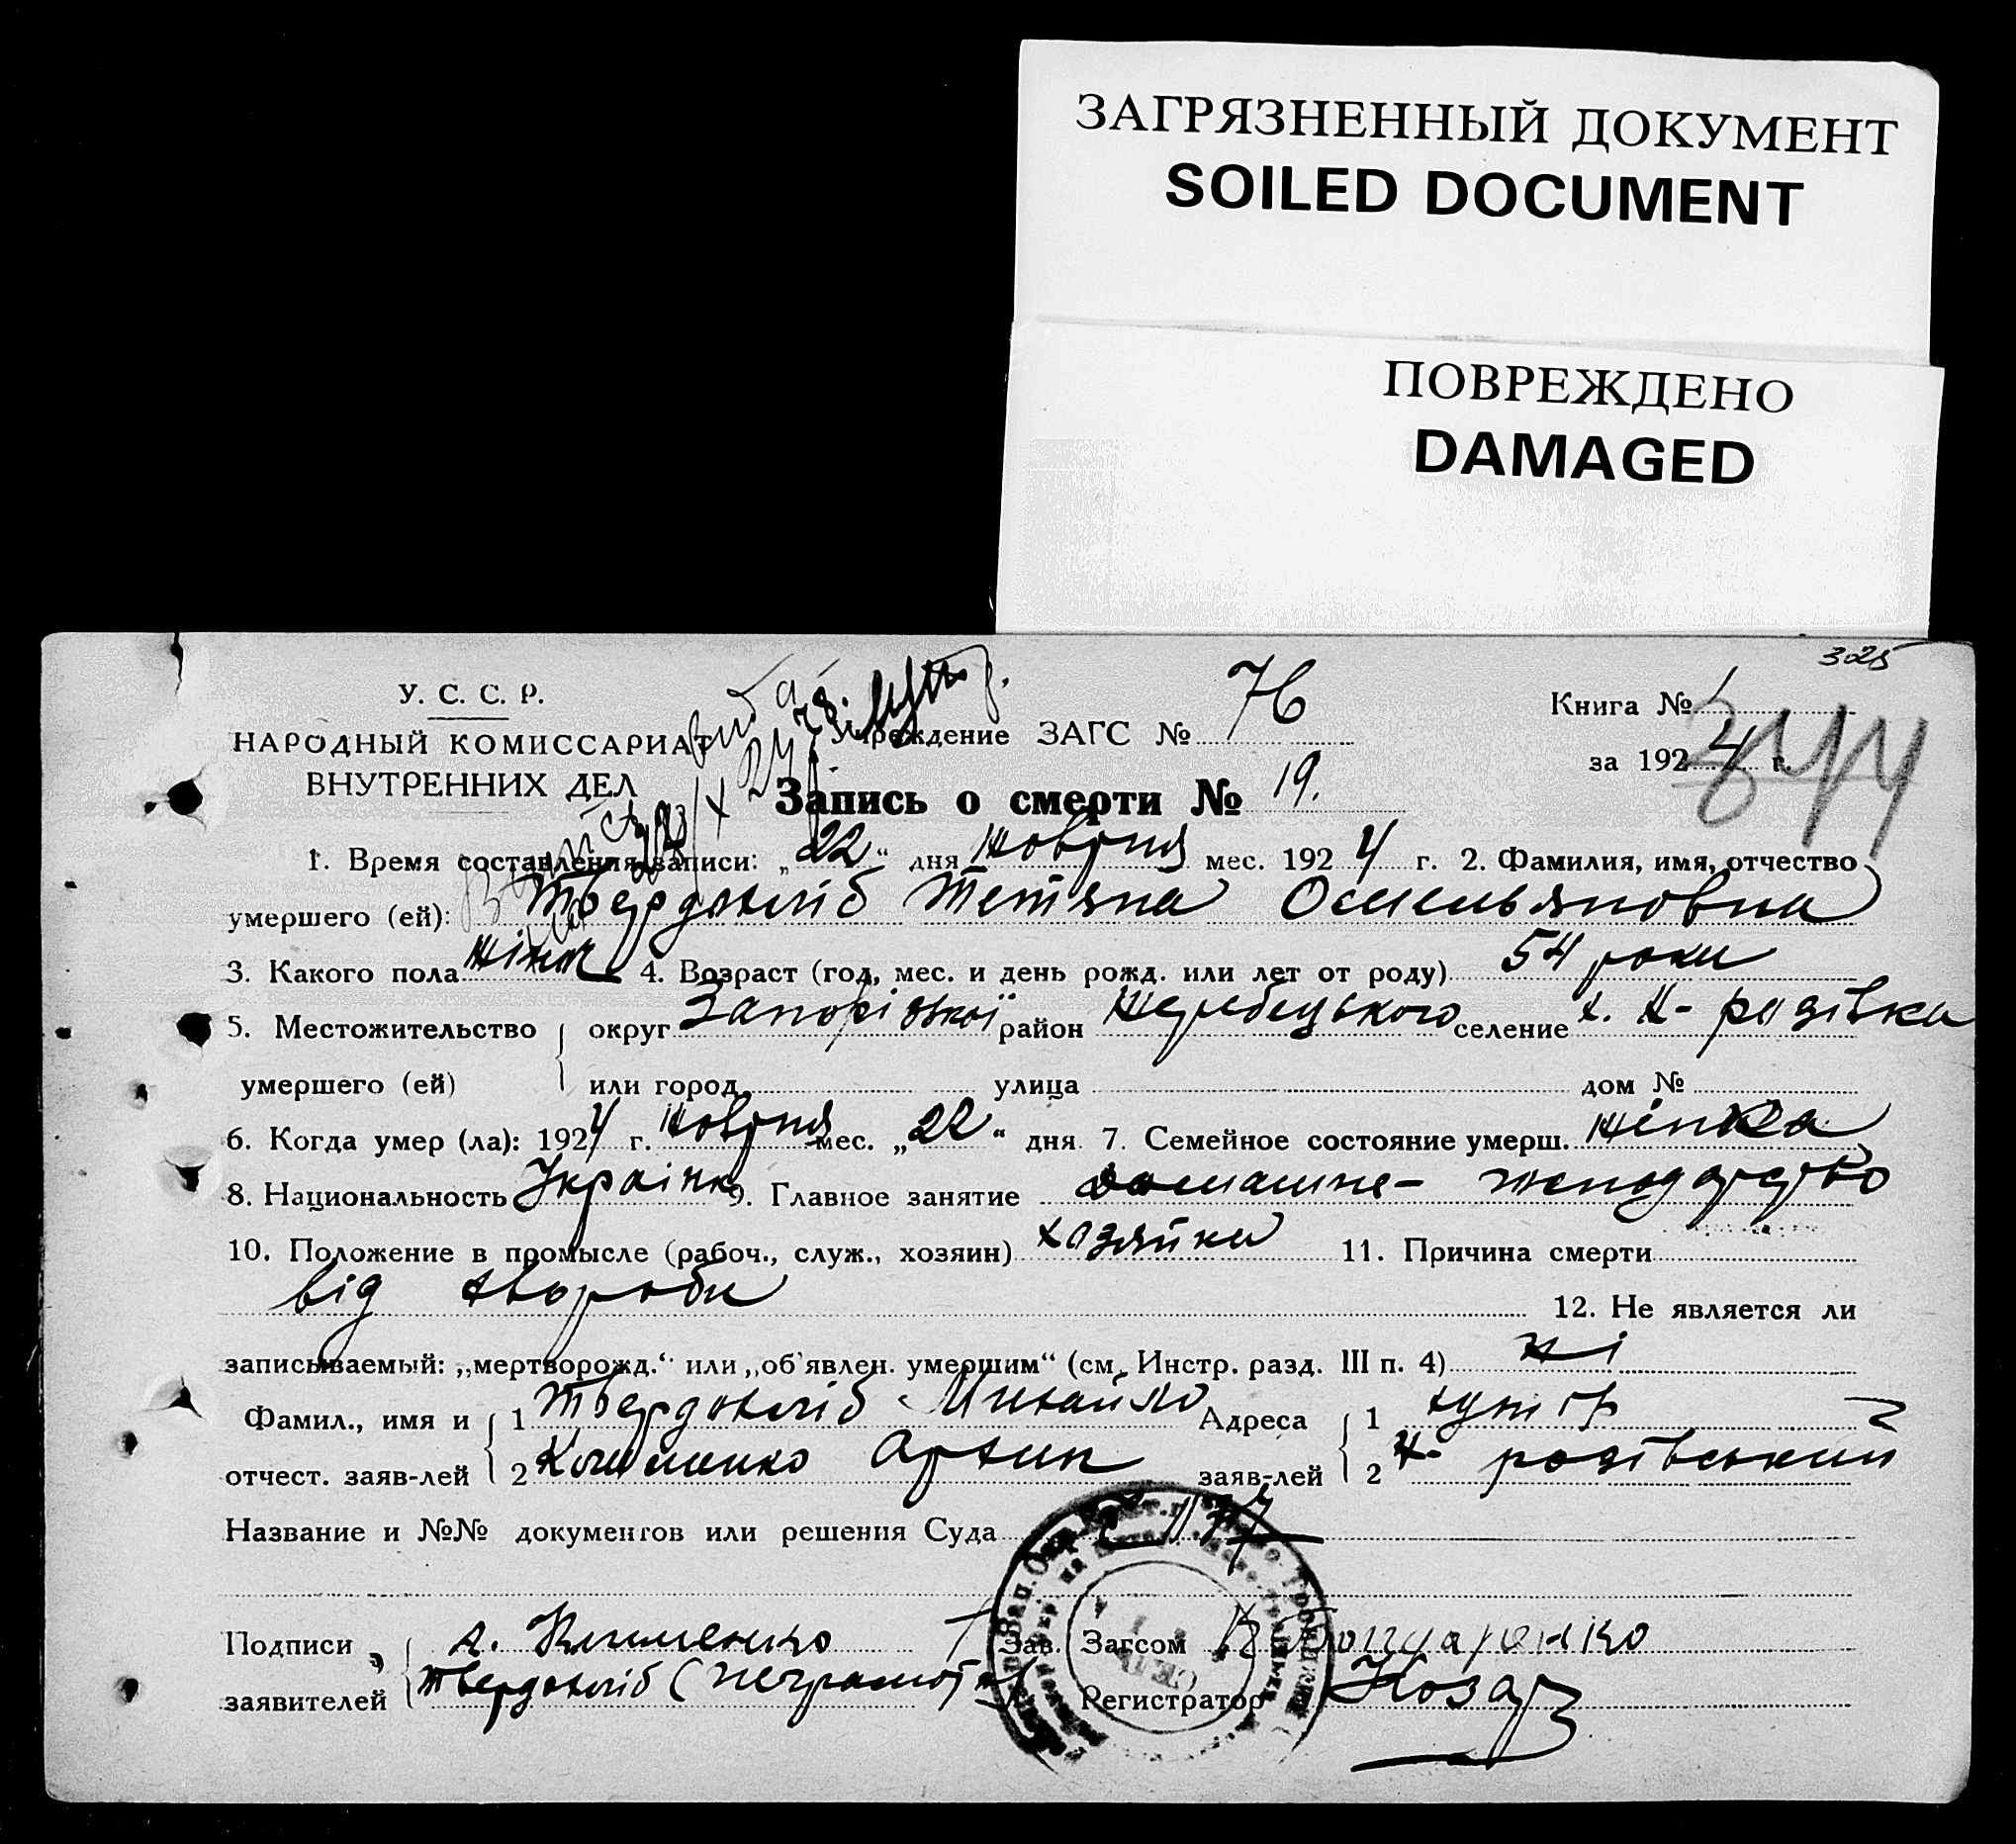 ЗАГРЯЗНЕННЫЙ ДОКУМЕНТ
SOILED DOCUMENT
ПОВРЕЖДЕНО
DAMAGED
325
У. С. С. Р.
НАРОДНЫЙ КОМИССАРИАТ
ВНУТРЕННИХ ДЕЛ
Учреждение ЗАГС № 76
Книга № 1
за 1924 г.
344
Запись о смерти № 19.
1. Время составления записи: „22“ дня Новрия мес. 1924 г. 2. Фамилия, имя, отчество
умершего (ей): Твердохліб Тетяна Омельяновна
3. Какого пола жінка 4. Возраст (год, мес. и день рожд. или лет от роду) 54 роки
5. Местожительство округ Запорізької район Жеребецького селение х. Н-розівка
умершего (ей) или город улица дом №
6. Когда умер (ла): 1924 г. Новрия мес. „22“ дня 7. Семейное состояние умерш. жінка
8. Национальность Україінка 9. Главное занятие домашнє-
10. Положение в промысле (рабоч., служ., хозяин) хозяйка 11. Причина смерти
від хвороби 12. Не является ли
записываемый: „мертворожд.“ или „об'явлен. умершим“ (см. Инстр. разд. III п. 4) ні
Фамил., имя и 1 Твердохліб Михайло Адреса 1 хутір
отчест. заяв-лей 2 Клименко Архип заяв-лей 2 Н- розівський
Название и №№ документов или решения Суда
Подписи А. Клименко Зав. Загсом Бондаренко
заявителей Твердохліб (неграмотн) Регистратор Козар